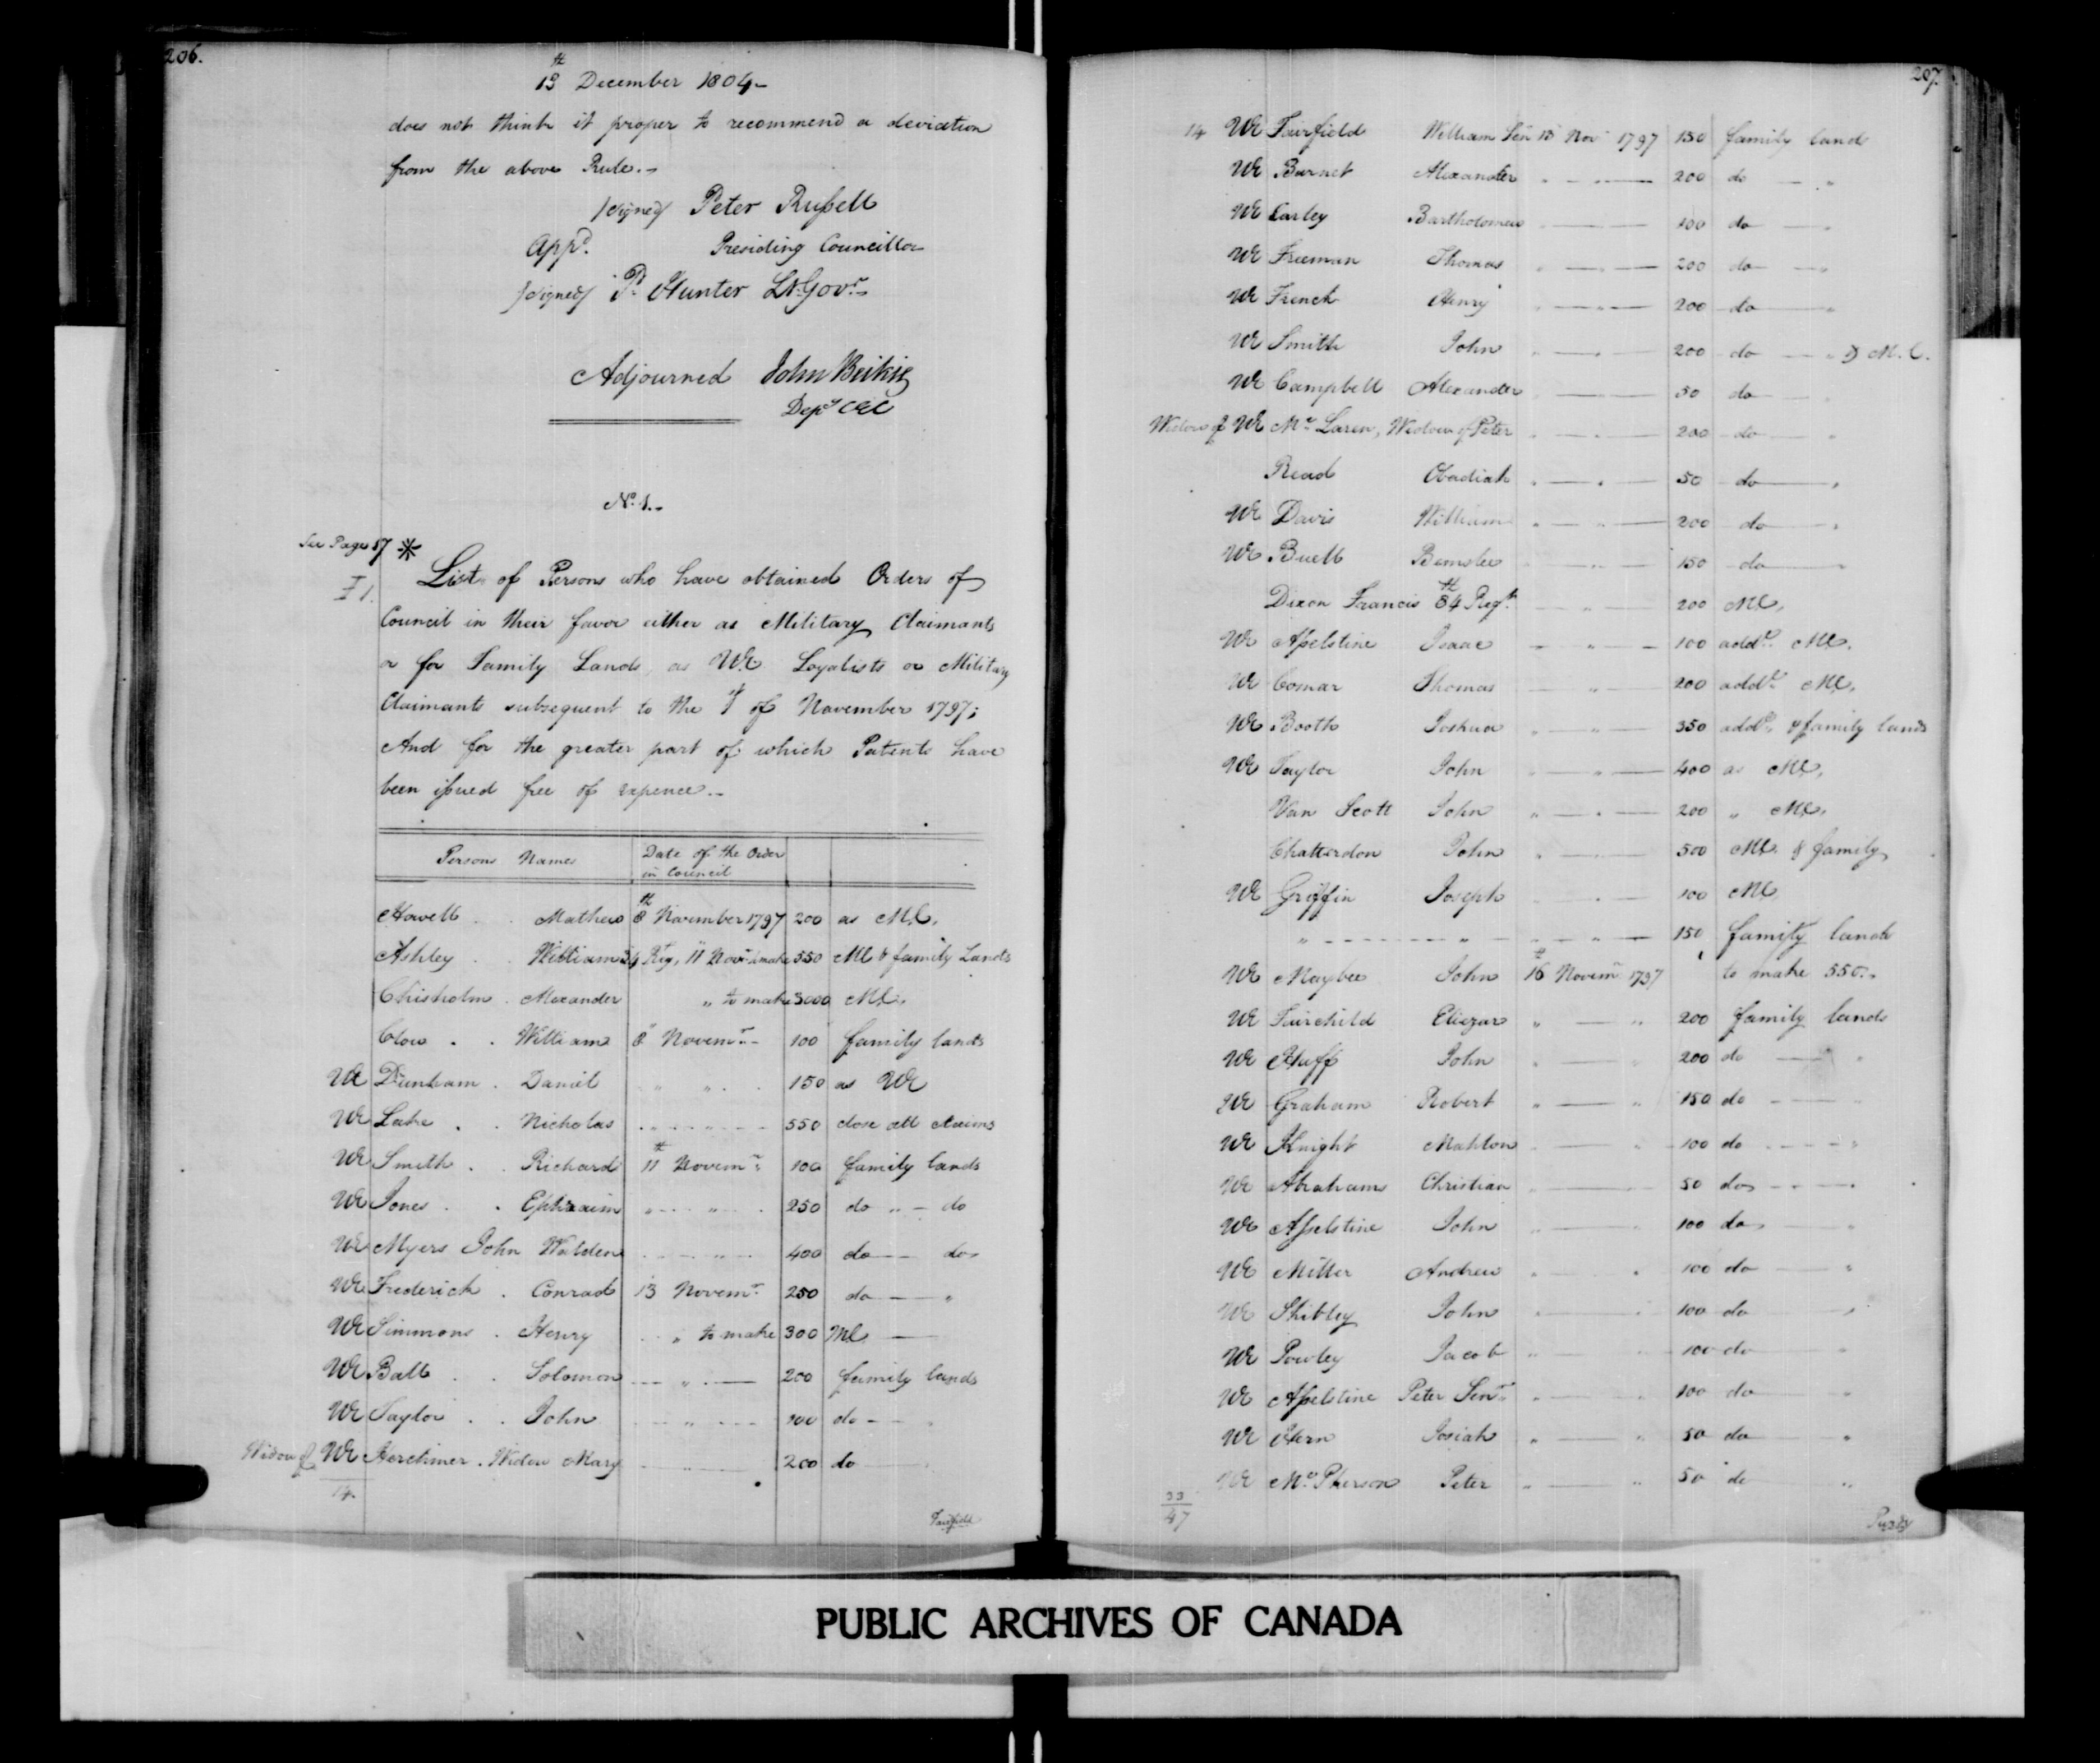 206.
13th December 1804 -
does not think it proper to recommend a deviation
from the above Rule. -
/signed/ Peter Russell
App.d Presiding Councillor
/signed/ P. Hunter Lt. Gov.r -
Adjourned John Beikie
Depy CEC
No. 1. -
See Page 87 *
List of Persons who have obtained Orders of
Council in their favor either as Military Claimants
or for Family Lands as UE Loyalists or Military
Claimants subsequent to the of November 1797;
And for the greater part of which Patents have
been issued free of expence. -
Persons Names Date of the Order in Council
Howell Mathew 8th November 1797 200 as M.C.
Ashley William 34 Reg, 11 Nov.r to make 550 MC & family Lands
Chisholm Alexander " to make 3000 M.C.
Clow William 8" Novem.r 100 family lands
UE Dunham Daniel " " 150 as UE
UE Lake Nicholas 550 close all claims
UE Smith Richard 11th Novem.r 100 family lands
UE Jones Ephraim " " 250 do " - do
UE Myers John Walden " 400 do - do
UE Frederick Conrad 13 Novem.r 250 do - "
UE Simmons Henry " to make 300 MC -
UE Ball Solomon " 200 family lands
UE Taylor John " 100 do -
Widow of UE Herchmer Widow Mary " 200 do
14.
Fairfield
207.
14 UE Fairfield William Sen 13 Nov 1797 150 family lands
UE Burnet Alexander " 200 do - "
UE Carley Bartholomew 100 do - "
UE Freeman Thomas " 200 do - "
UE French Henry " 200 do "
UE Smith John " 200 do - " & M.C.
UE Campbell Alexander 50 do
Widow of UE Mc Laren, Widow of Peter " 200 do "
Read Obadiah " 50 do "
UE Davis William " 200 do "
UE Buell Bemslee " 150 do "
Dixon Francis 84th Reg.t " 200 MC,
UE Asselstine Isaac " 100 add.l MC.
UE Comar Thomas " 200 add.l MC,
UE Booth Joshua " 350 add.l & family lands
UE Taylor John " 400 as MC,
Van Scott John " 200 " MC,
Chatterdon John " 500 MC. & family
UE Griffin Joseph 100 MC
" " " 150 family lands
UE Maybee John 16th Novem.r 1797 to make 550. -
UE Fairchild Eliezar " " 200 family lands
UE Huff John " " 200 do "
UE Graham Robert " " 150 do
UE Knight Mahlon " " 100 do "
UE Abrahams Christian " 50 do
UE Asselstine John " " 100 do "
UE Miller Andrew " " 100 do "
UE Shibley John " " 100 do "
UE Powley Jacob " " 100 do "
UE Asselstine Peter Sen.r " " 100 do "
UE Hern Josiah " " 50 do "
UE Mc Pherson Peter " " 50 do "
33
47
Purdy
PUBLIC ARCHIVES OF CANADA